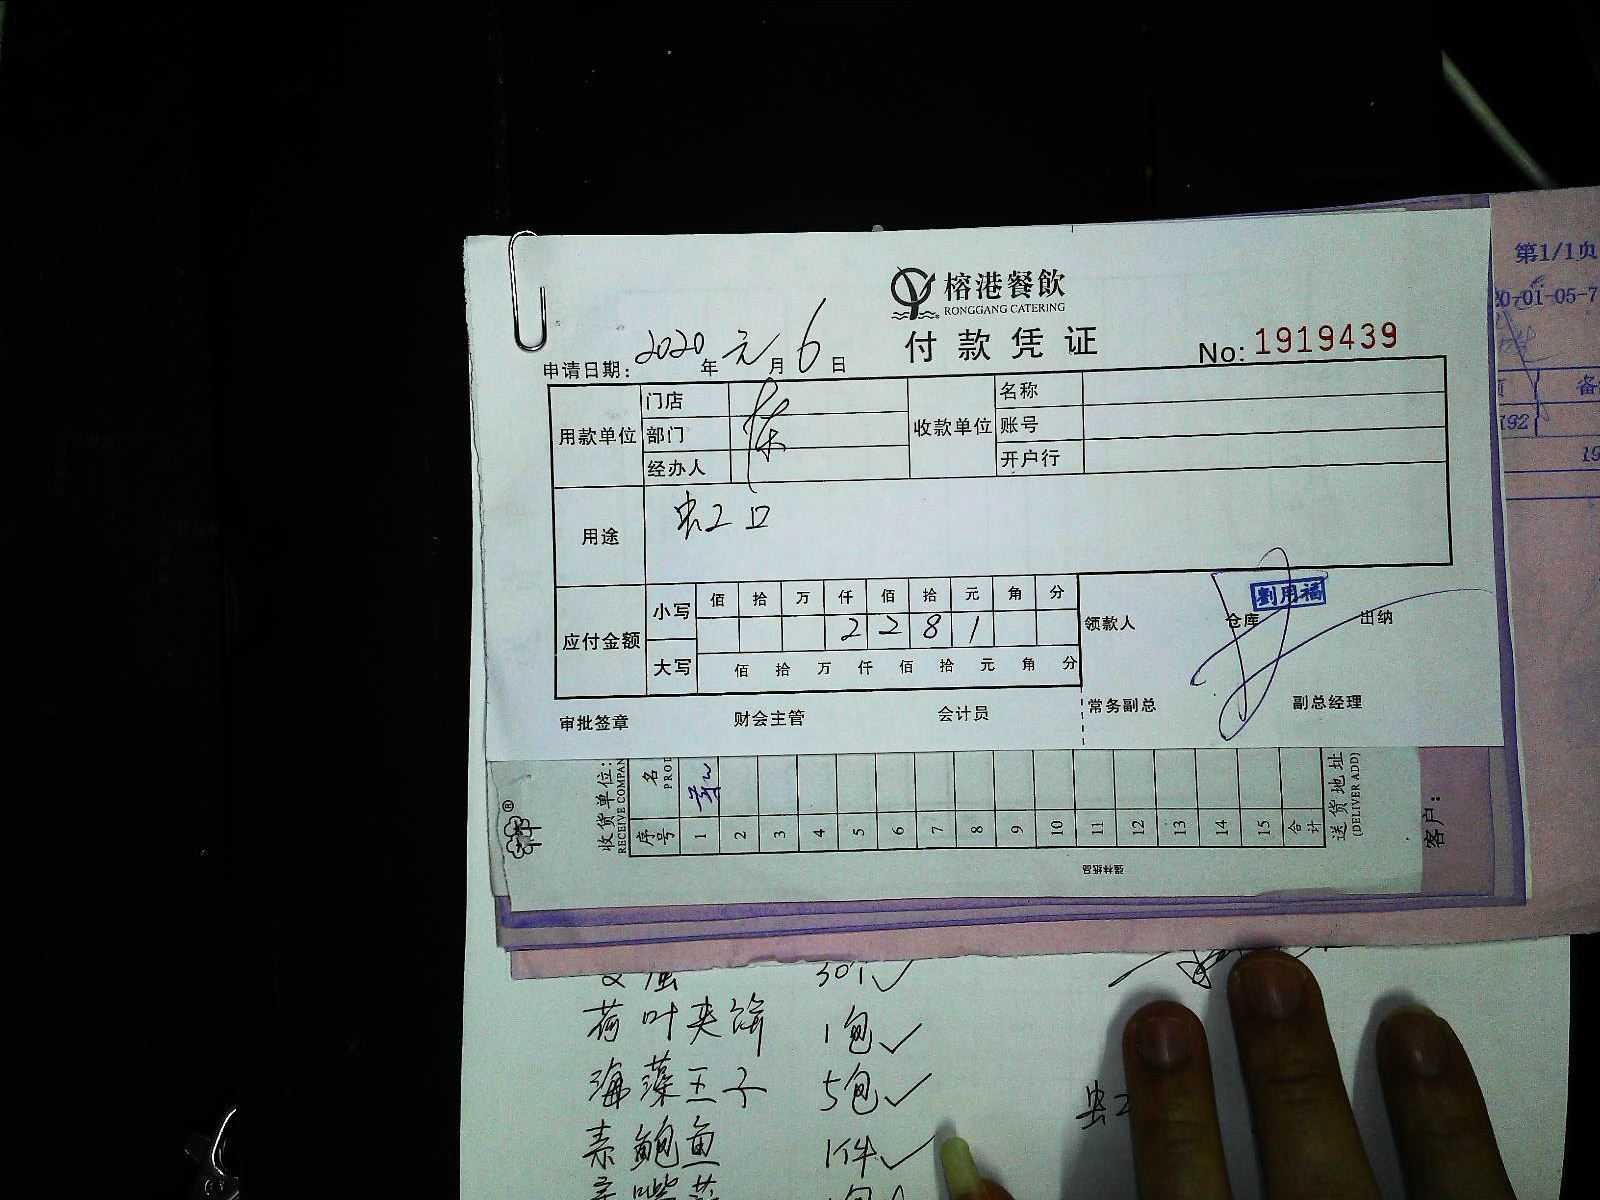 榕港餐飲
RONGGANG CATERING
付款凭证
No: 1919439
申请日期: 2020年元月6日
用款单位 门店
部门
经办人
收款单位 名称
账号
开户行
用途 虹口
应付金额 小写 佰 拾 万 仟 佰 拾 元 角 分
2 2 8 1
大写 佰 拾 万 仟 佰 拾 元 角 分
领款人 仓库 出纳
劉用福
审批签章 财会主管 会计员 常务副总 副总经理
第1/1页
0-01-05-7
192
收货单位:
RECEIVE COMPAN
序号 1 2 3 4 5 6 7 8 9 10 11 12 13 14 15 合计
名
PROD
送货地址
(DELIVER ADD)
客户:
强林纸品
30个
荷叶夹饼 1包
海藻王子 5包
素鲍鱼 1件